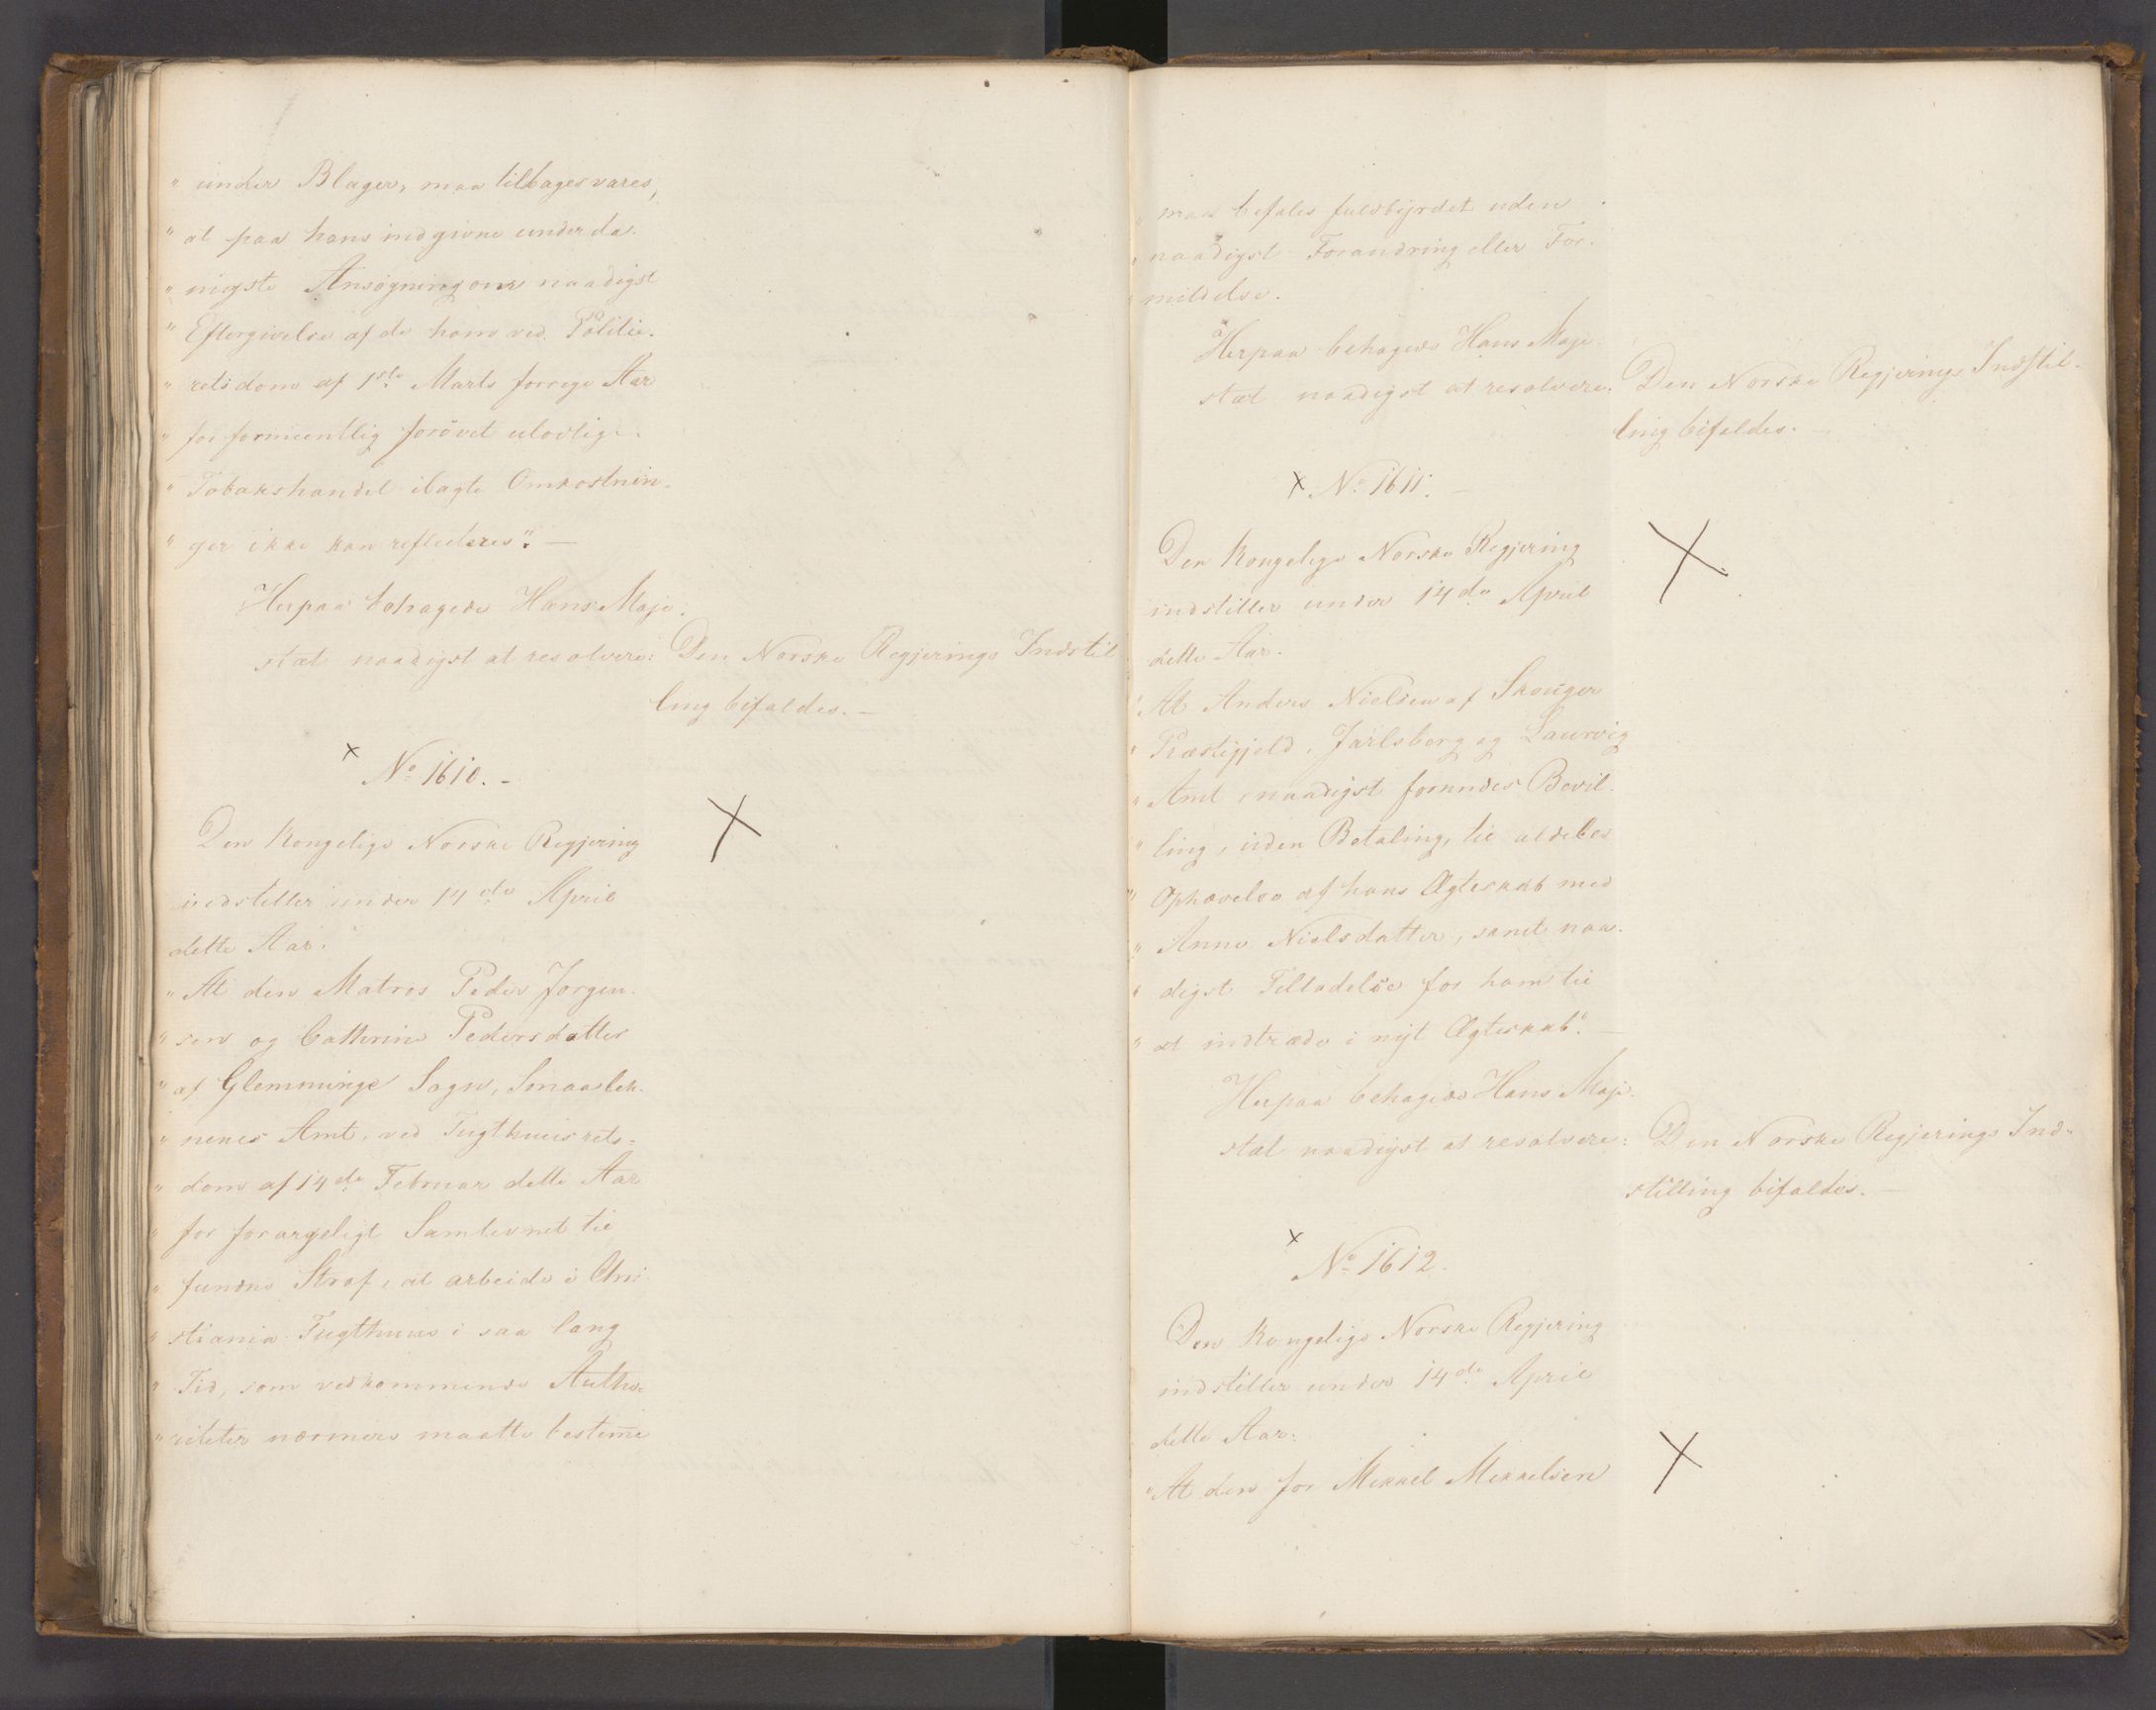 " under Blager, maa tilbagesvares,
" at paa hans indgivne underda-
" nigste Ansøgning om naadigst
" Eftergivelse af de ham ved Politie-
" retsdom af 1ste Marts forrige Aar
" for formeentlig forövet ulovlig
" Tobakshandel ilagte Omkostnin-
" ger ikke kan reflecteres". —
Herpaa behagede Hans Maje-
stæt naadigst at resolvere: Den Norske Regjerings Indstil
ling bifaldes. —
x No 1610. -
Den Kongelige Norske Regjering
indstiller under 14de April
dette Aar:
" At den Matros Peder Jørgen-
" sen og Cathrine Pedersdatter
" af Glemminge Sogn, Smaaleh-
" nenes Amt, ved Tugthuusrets-
" dom af 14de Februar dette Aar
" for forargeligt Samlevnet til
" fundne Straf, at arbeide i Chri-
" stiania Tugthuus i saa lang
" Tid, som vedkommende Autho-
" riteter nærmere maatte bestem̅e
" maa befales fuldbyrdet uden
" naadigst Forandring eller For-
" mildelse.
Herpaa behagede Hans Maje-
stæt naadigst at resolvere: Den Norske Regjerings Indstil-
ling bifaldes. —
x No 1611. —
Den Kongelige Norske Regjering
indstiller under 14de April
dette Aar.
" At Anders Nielsen af Skouger
" Præstegjeld, Jarlsberg og Laurvig
" Amt, naadigst forundes Bevil-
" ling, uden Betaling, til aldeles
" Ophævelse af hans Ægteskab med
" Anne Nielsdatter, samt naa-
" digst Tilladelse for ham til
" at indtræde i nyt Ægteskab". —
Herpaa behagede Hans Maje-
stæt naadigst at resolvere: Den Norske Regjerings Ind-
stilling bifaldes. —
x No 1612.
Den Kongelige Norske Regjering
indstiller under 14de April
dette Aar:
" At den for Mikkel Mikkelsen